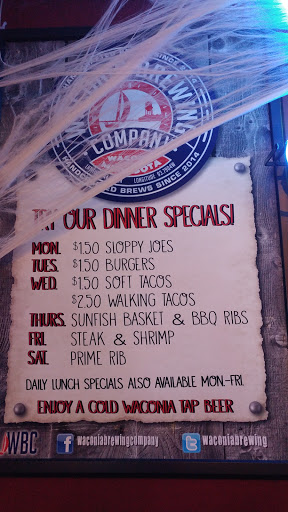 BREWING
COMPANY
WACONIA
LONGITUDE
BREWS SINCE 2014
TRY OUR DINNER SPECIALS!
MON. $1.50 SLOPPY JOES
TUES. $1.50 BURGERS
WED. $1.50 SOFT TACOS
$2.50 WALKING TACOS
THURS. SUNFISH BASKET & BBQ RIBS
FRI. STEAK & SHRIMP
SAT. PRIME RIB
DAILY LUNCH SPECIALS ALSO AVAILABLE MON.-FRI.
ENJOY A COLD WACONIA TAP BEER
WBC f waconiabrewingcompany waconiabrewing